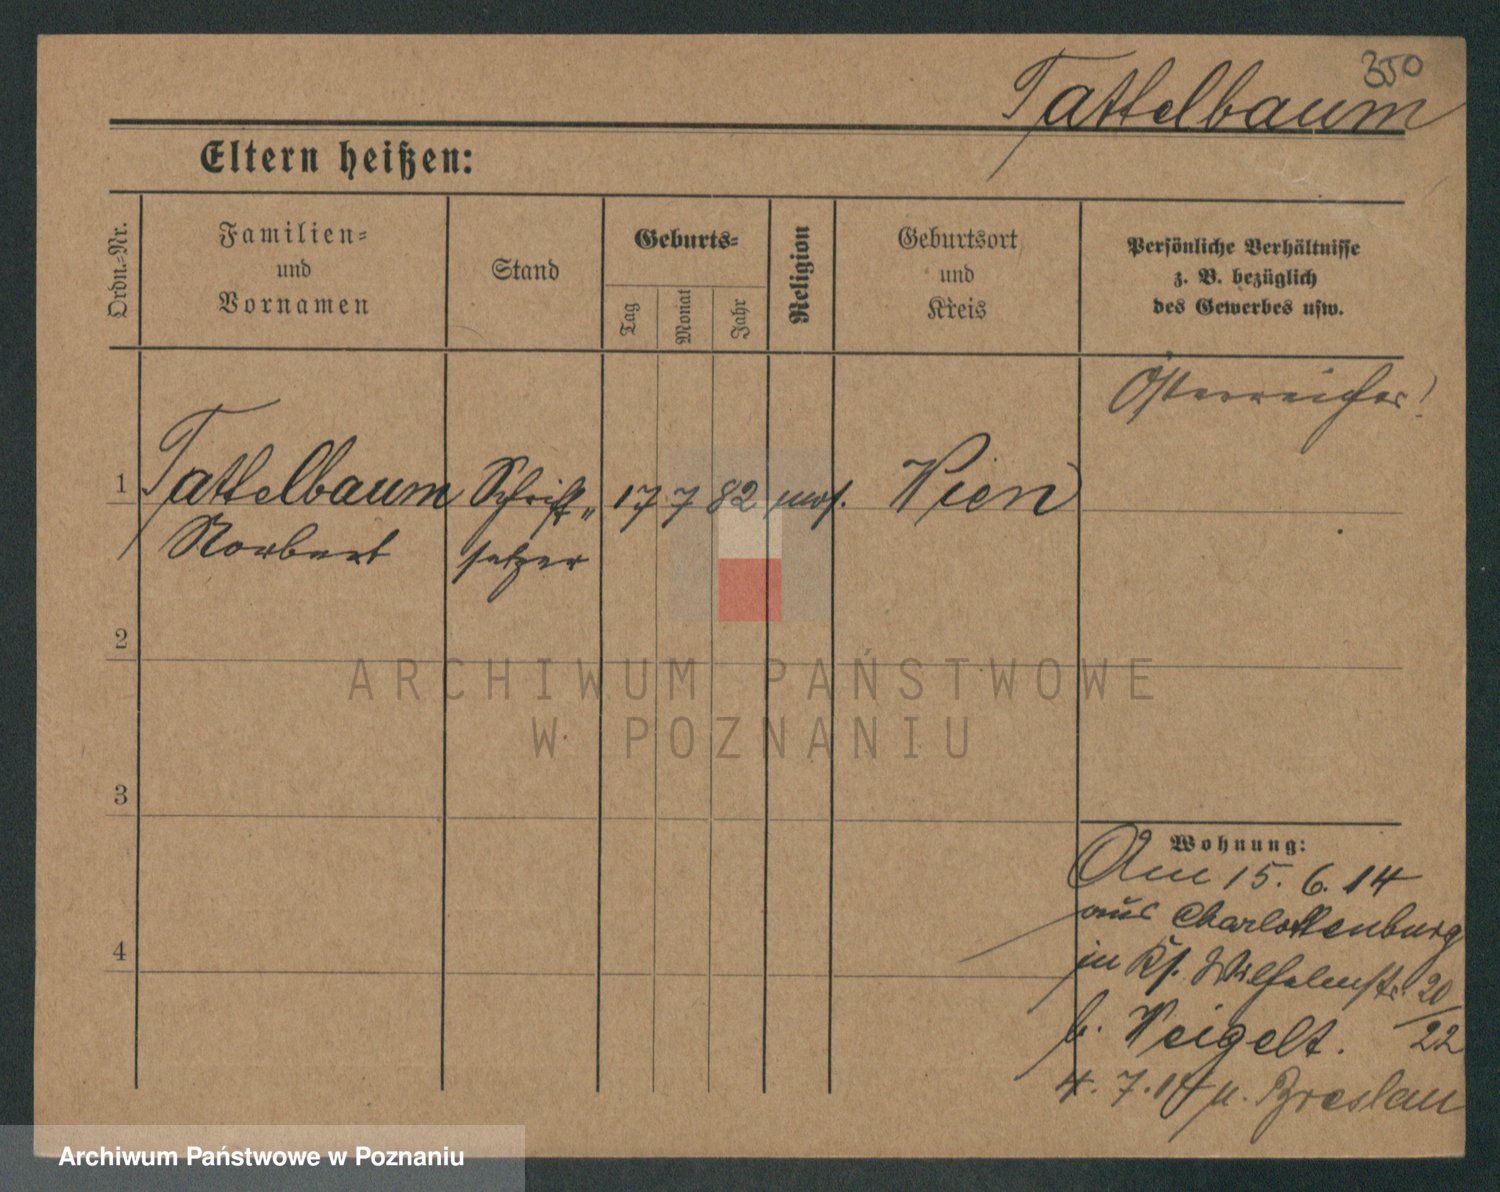 350
Tattelbaum
Eltern heißen:
Ordn.-Nr.
Familien-
und
Vornamen
Stand
Geburts-
Tag
Monat
Jahr
Religion
Geburtsort
und
Kreis
Persönliche Verhältnisse
z. B. bezüglich
des Gewerbes usw.
Österreicher!
1
Tattelbaum Schrift„ 17 7 82 mos. Wien
Norbert setzer
2
ARCHIWUM PAŃSTWOWE
W POZNANIU
3
Wohnung:
Am 15. 6. 14
aus Charlottenburg
4
in Ks. Wilhelmstr. 20/22
b. Weigelt.
4. 7. 14 n. Breslau
Archiwum Państwowe w Poznaniu